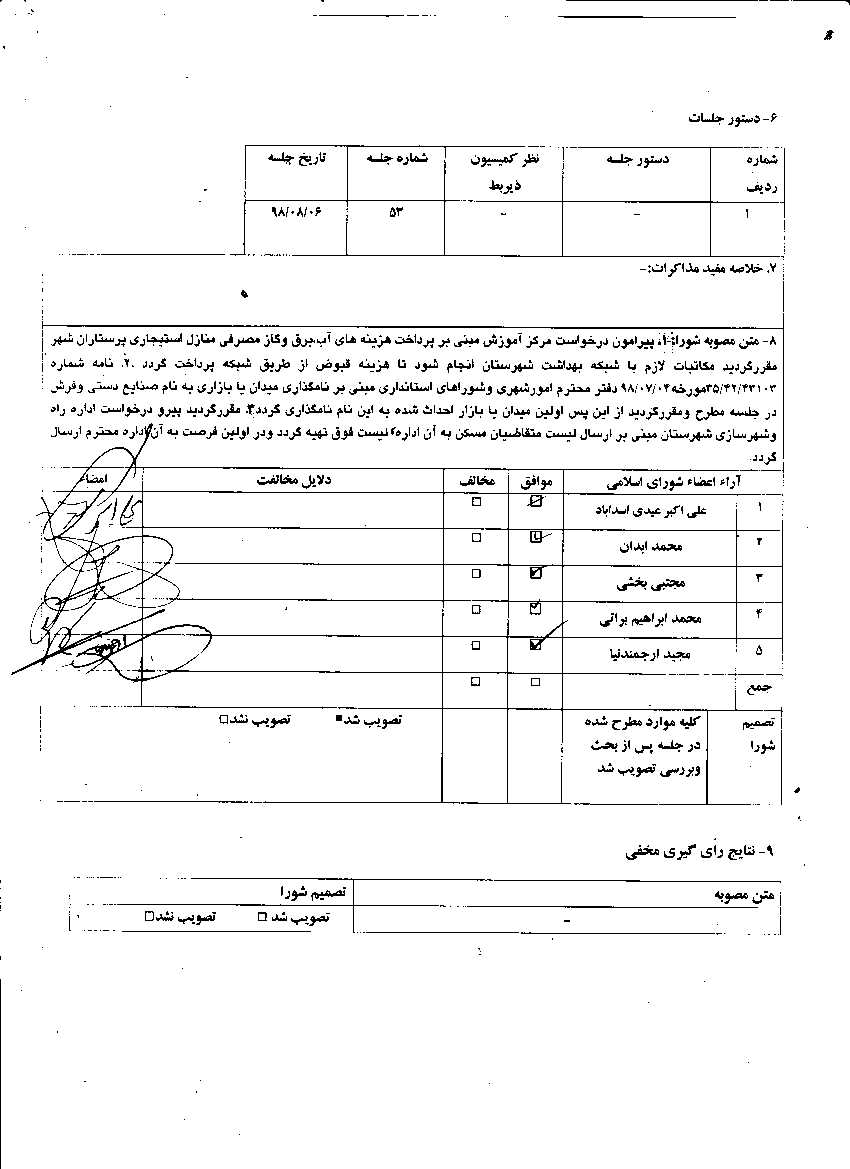 ۶- دستور جلسات
شماره ردیف دستور جلسه نظر کمیسیون ذیربط شماره جلسه تاریخ جلسه
۱ - - ۵۳ ۹۸/۰۸/۰۶
۷. خلاصه مفید مذاکرات:-
۸- متن مصوبه شورا: ۱. پیرامون درخواست مرکز آموزش مبنی بر پرداخت هزینه های آب،برق وگاز مصرفی منازل استیجاری پرستاران شهر
مقررگردید مکاتبات لازم با شبکه بهداشت شهرستان انجام شود تا هزینه قبوض از طریق شبکه پرداخت گردد .۲. نامه شماره
۳۵/۴۲/۴۳۱۰۳مورخه۹۸/۰۷/۰۴ دفتر محترم امورشهری وشوراهای استانداری مبنی بر نامگذاری میدان یا بازاری به نام صنایع دستی وفرش
در جلسه مطرح ومقررگردید از این پس اولین میدان یا بازار احداث شده به این نام نامگذاری گردد.۳. مقررگردید پیرو درخواست اداره راه
وشهرسازی شهرستان مبنی بر ارسال لیست متقاضیان مسکن به آن اداره، لیست فوق تهیه گردد ودر اولین فرصت به آن اداره محترم ارسال
گردد.
آراء اعضاء شورای اسلامی موافق مخالف دلایل مخالفت امضاء
۱ علی اکبر عیدی اسدآباد ☑ ☐
۲ محمد ابدان ☑ ☐
۳ مجتبی بخشی ☑ ☐
۴ محمد ابراهیم براتی ☑ ☐
۵ مجید ارجمندنیا ☑ ☐
جمع ☐ ☐
تصمیم کلیه موارد مطرح شده تصویب شد■ تصویب نشد□
شورا در جلسه پس از بحث
وبررسی تصویب شد
۹- نتایج رأی گیری مخفی
متن مصوبه تصمیم شورا
- تصویب شد □ تصویب نشد□